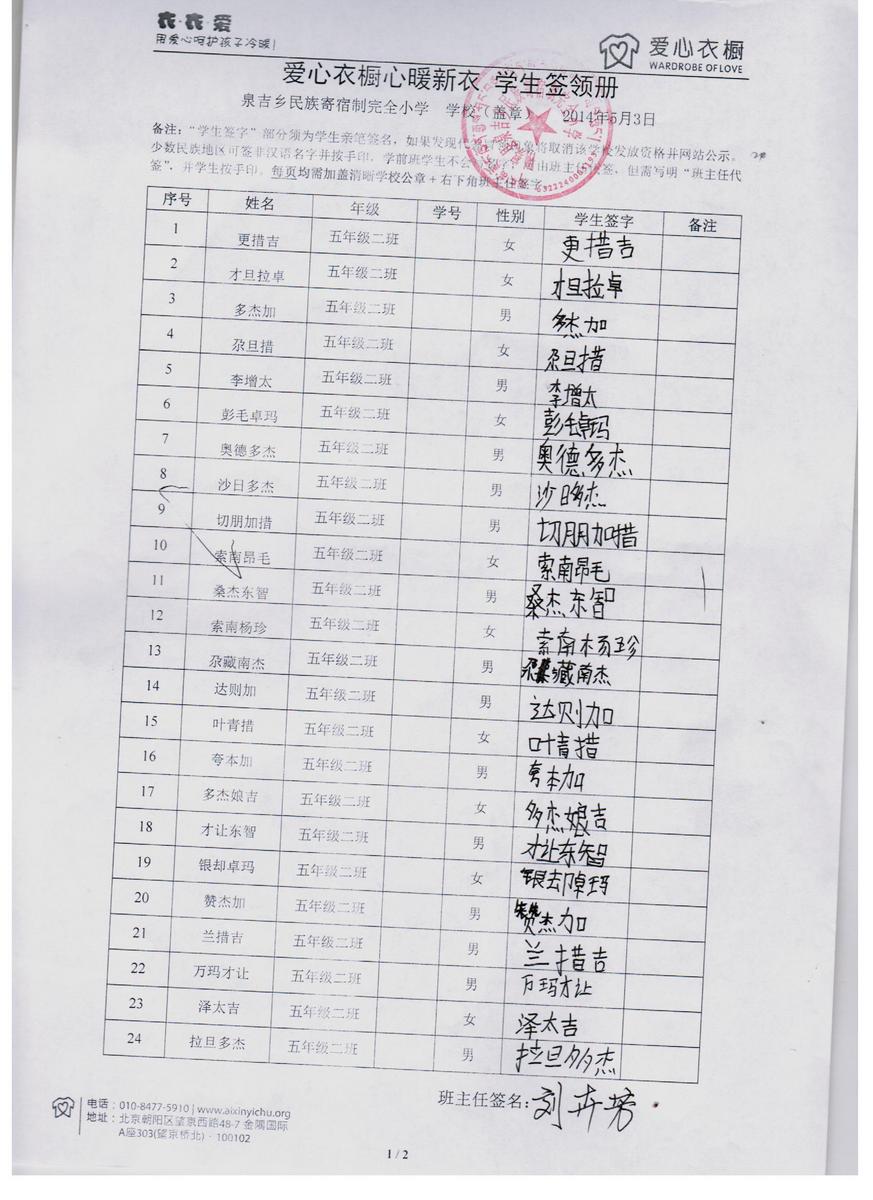 衣·衣·爱
用爱心呵护孩子冷暖!
爱心衣橱
WARDROBE OF LOVE
爱心衣橱心暖新衣 学生签领册
泉吉乡民族寄宿制完全小学 学校（盖章） 2014年5月3日
备注：“学生签字”部分须为学生亲笔签名，如果发现代 将取消该学校发放资格并网站公示。
少数民族地区可签非汉语名字并按手印。学前班学生不会 由班主任代签，但需写明“班主任代
签”，并学生按手印。每页均需加盖清晰学校公章+右下角班主任签字
序号 姓名 年级 学号 性别 学生签字 备注
1 更措吉 五年级二班 女 更措吉
2 才旦拉卓 五年级二班 女 才旦拉卓
3 多杰加 五年级二班 男 多杰加
4 尕旦措 五年级二班 女 尕旦措
5 李增太 五年级二班 男 李增太
6 彭毛卓玛 五年级二班 女 彭毛卓玛
7 奥德多杰 五年级二班 男 奥德多杰
8 沙日多杰 五年级二班 男 沙日多杰
9 切朋加措 五年级二班 男 切朋加措
10 索南昂毛 五年级二班 女 索南昂毛
11 桑杰东智 五年级二班 男 桑杰东智
12 索南杨珍 五年级二班 女 索南杨珍
13 尕藏南杰 五年级二班 男 尕藏南杰
14 达则加 五年级二班 男 达则加
15 叶青措 五年级二班 女 叶青措
16 夸本加 五年级二班 男 夸本加
17 多杰娘吉 五年级二班 女 多杰娘吉
18 才让东智 五年级二班 男 才让东智
19 银却卓玛 五年级二班 女 银却卓玛
20 赞杰加 五年级二班 男 赞杰加
21 兰措吉 五年级二班 男 兰措吉
22 万玛才让 五年级二班 男 万玛才让
23 泽太吉 五年级二班 女 泽太吉
24 拉旦多杰 五年级二班 男 拉旦多杰
班主任签名：刘卉芳
电话：010-8477-5910 | www.aixinyichu.org
地址：北京朝阳区望京西路48-7 金隅国际
A座303(望京桥北)·100102
1 / 2